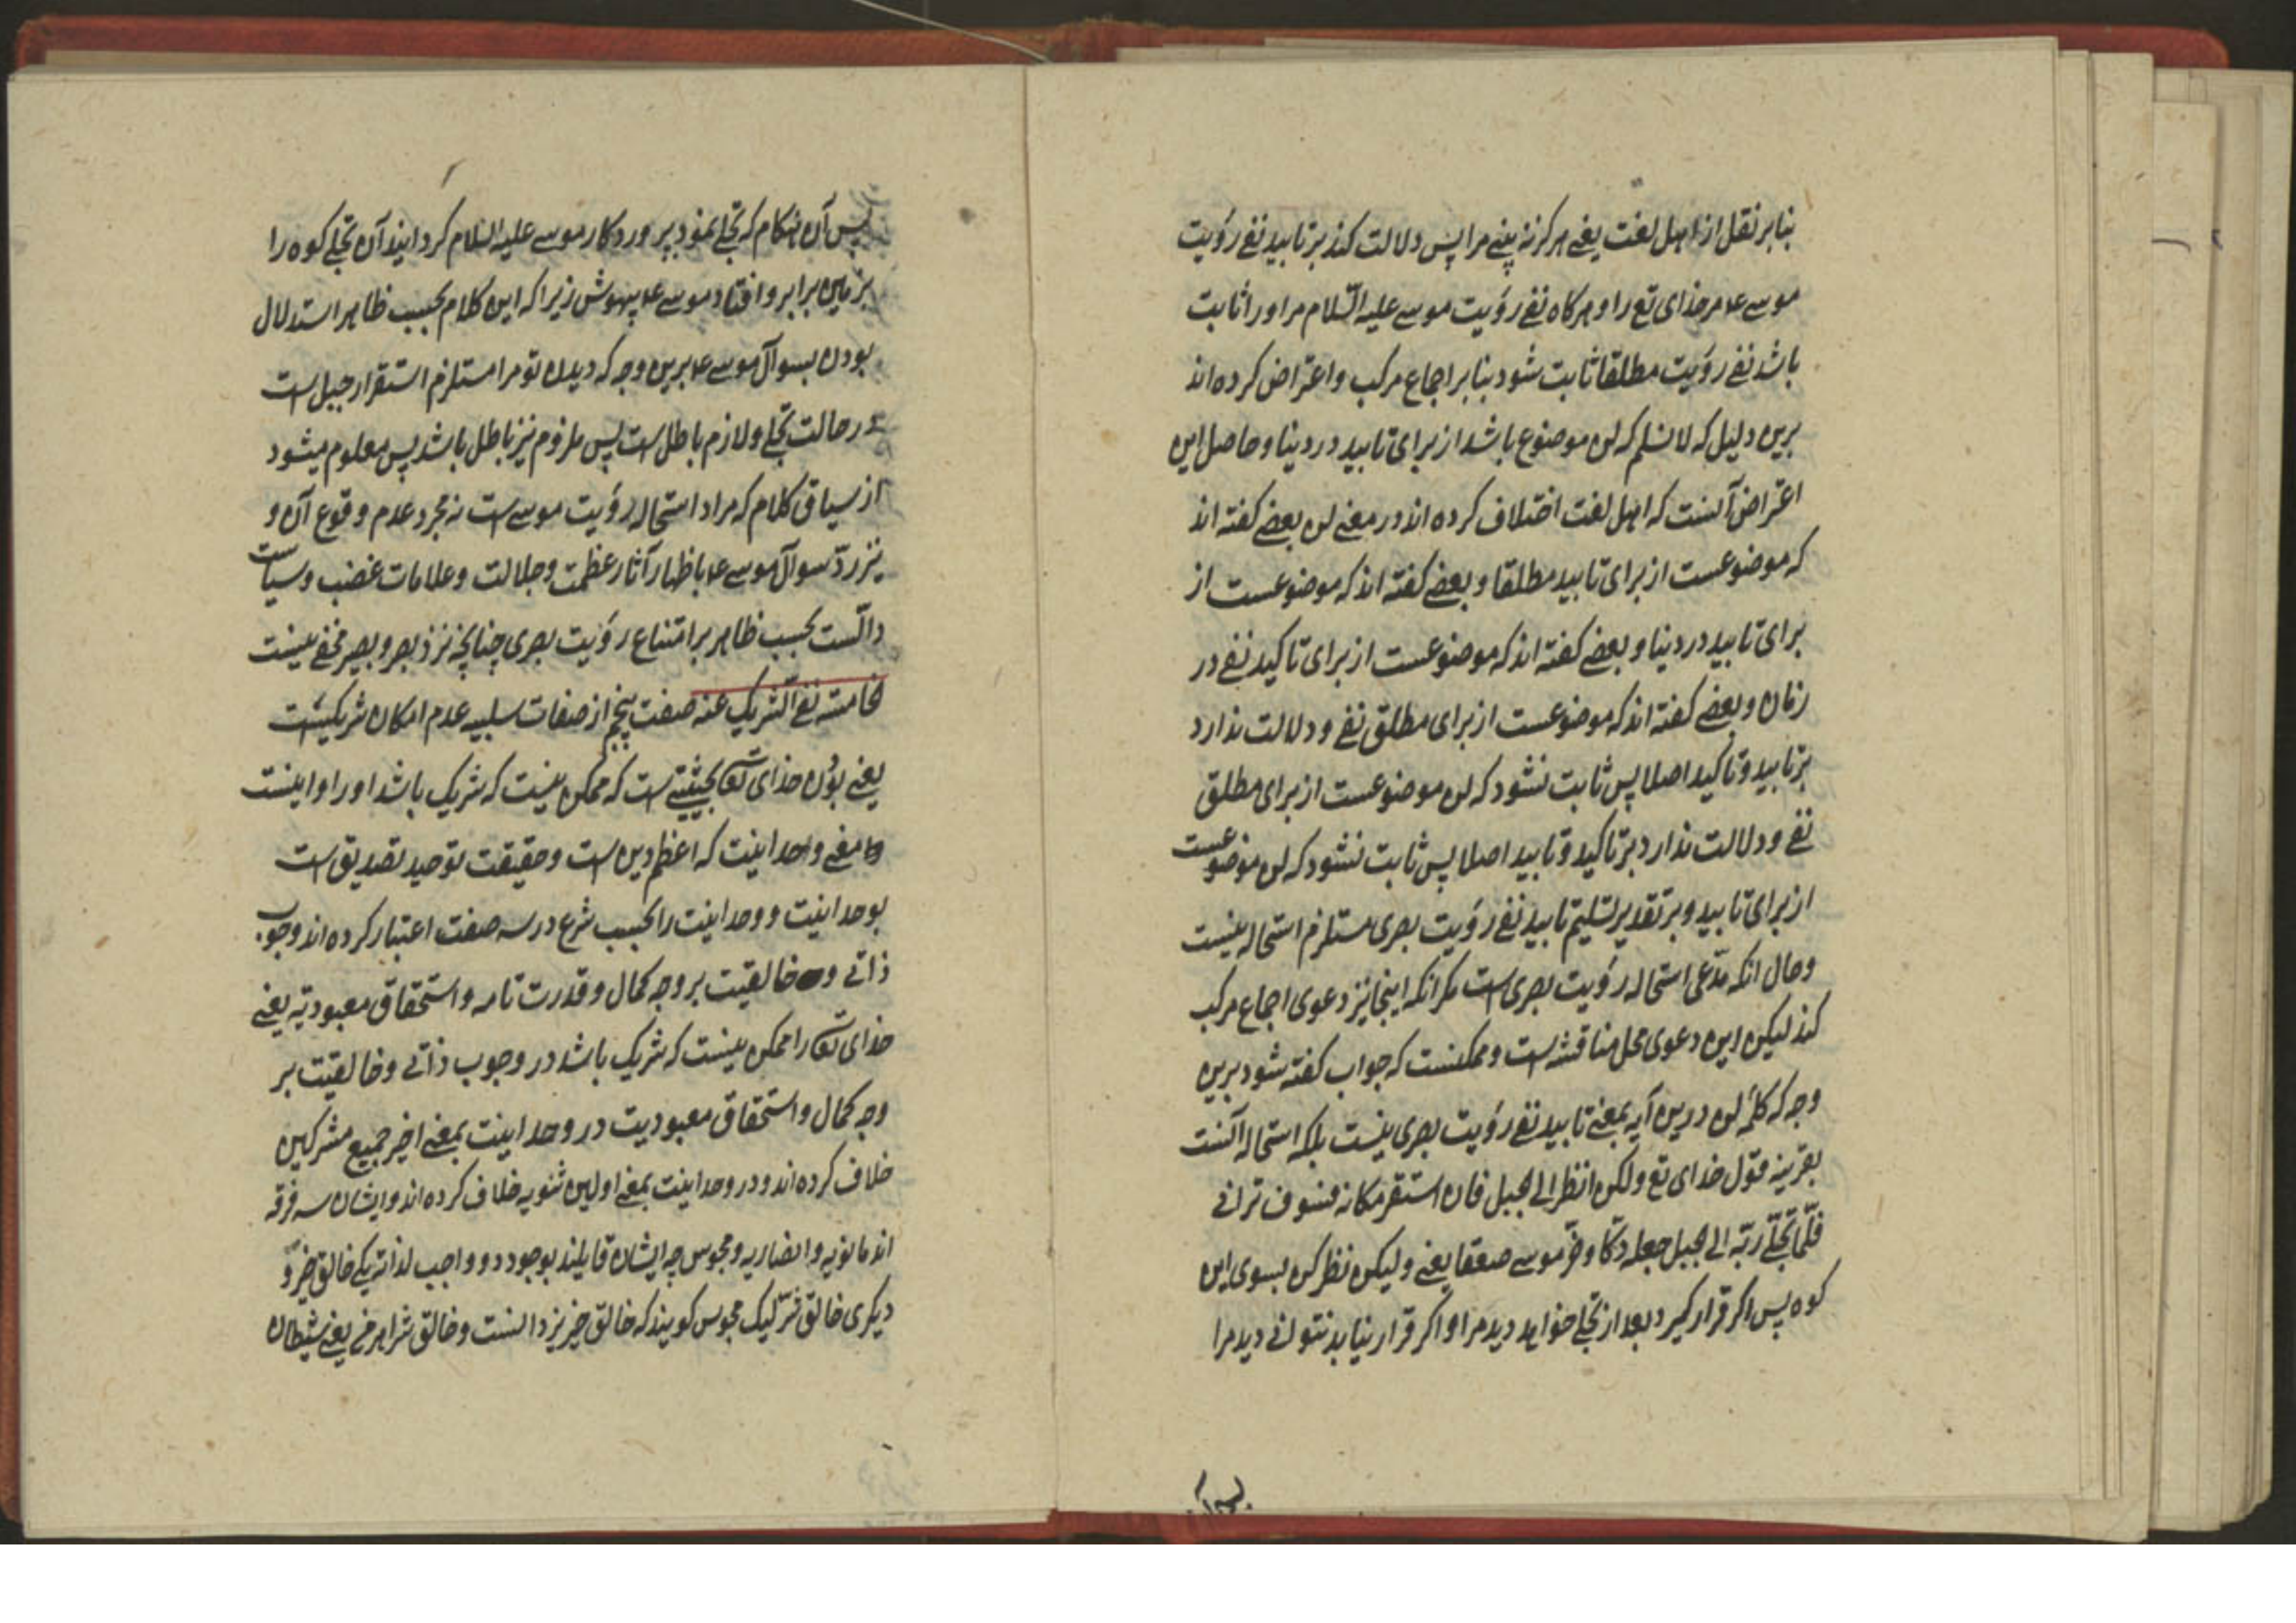 بنابر نقل از اهل لغت یعنی هرکز نه بینی مرا پس دلالت کند بر تابید نفی رؤیت
موسی ع مر خدای تع را و هرکاه نفی رؤیت موسی علیه السّلام مر او را ثابت
باشد نفی رؤیت مطلقا ثابت شود بنابر اجماع مرکب و اعتراض کرده اند
برین دلیل که لا نسلم که لن موضوع باشد از برای تابید در دینا و حاصل این
اعتراض آنست که اهل لغت اختلاف کرده اند در معنی لن بعضی کفته اند
که موضوعست از برای تابید مطلقا و بعضی کفته اند که موضوعست از
برای تابید در دینا و بعضی کفته اند که موضوعست از برای تاکید نفی در
زمان و بعضی کفته اند که موضوعست از برای مطلق نفی و دلالت ندارد
بر تابید و تاکید اصلا پس ثابت نشود که لن موضوعست از برای مطلق
نفی و دلالت ندارد بر تاکید و تابید اصلا پس ثابت نشود که لن موضوعست
از برای تابید و بر تقدیر تسلیم تابید نفی رؤیت بصری مستلزم استحاله نیست
و حال انکه مدّعی استحاله رؤیت بصری است مکر انکه اینجا نیز دعوی اجماع مرکب
کند لیکن این دعوی محل مناقشه است و ممکنست که جواب کفته شود برین
وجه که کلمه لن درین آیه بمعنی تابید نفی رؤیت بصری نیست بلکه استحاله آنست
بقرینه قول خدای تع ولکن انظر الی الجبل فان استقر مکانه فسوف ترانی
فلمّا تجلّی ربّه الی الجبل جعله دکّا و خرّ موسی صعقا یعنی ولیکن نظر کن بسوی این
کوه پس اکر قرار کیرد بعد از تجلی خواهد دید مرا و اکر قرار نیابد نتوانی دید مرا
پس آن هنکام که تجلی نمود پروردکار موسی علیه السلام کردانید آن تجلی کوه را
بزمین برابر و افتاد موسی ع بیهوش زیرا که این کلام بحسب ظاهر استدلال
بودن بسوال موسی ع برین وجه که دیدن تو مرا مستلزم استقرار جبل است
در حالت تجلی و لازم باطل است پس ملزوم نیز باطل باشد پس معلوم میشود
از سیاق کلام که مراد استحاله رؤیت موسی است نه مجرد عدم وقوع آن و
نیز ردّ سوال موسی ع باظهار آثار عظمت و جلالت و علامات غضب و سیاست
دالّست بحسب ظاهر بر امتناع رؤیت بصری چنانچه نزد بصر و بصیر مخفی نیست
الخامسة نفی الشریک عنه صفت پنجم از صفات سلبیه عدم امکان شریکست
یعنی بودن خدای تع بحیثیتی است که ممکن نیست که شریک باشد او را و اینست
معنی وحدانیت که اعظم دین است و حقیقت توحید تصدیق است
بوحدانیت و وحدانیت را بحسب شرع در سه صفت اعتبار کرده اند وجوب
ذاتی و خالقیت بر وجه کمال و قدرت تامه و استحقاق معبودیة یعنی
خدای تع را ممکن نیست که شریک باشد در وجوب ذاتی و خالقیت بر
وجه کمال و استحقاق معبودیت در وحدانیت بمعنی اخیر جمیع مشرکین
خلاف کرده اند و در وحدانیت بمعنی اولین ثنویه خلاف کرده اند و ایشان سه فرقه
اند مانویه و انصاریه و مجوس چه ایشان قایلند بوجود دو واجب لذاته یکی خالق خیر و
دیکری خالق شرّ لیک مجوس کویند که خالق خیر یزدانست و خالق شر اهرمن یعنی شیطان